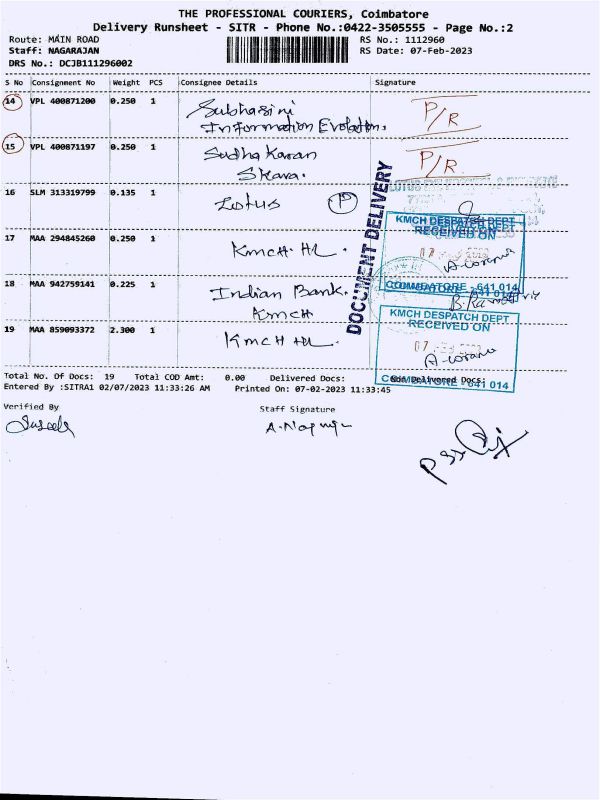 THE PROFESSIONAL COURIERS, Coimbatore
Delivery Runsheet - SITR - Phone No.:0422-3505555 - Page No.:2
Route: MAIN ROAD
RS No.: 1112960
Staff: NAGARAJAN
RS Date: 07-Feb-2023
DRS No.: DCJB111296002
S No Consignment No Weight PCS Consignee Details Signature
14 VPL 400871200 0.250 1 Subhasini P/R
Information Evolution.
15 VPL 400871197 0.250 1 Sudha Karan P/R.
16 SLM 313319799 0.135 1 Lotus P
DOCUMENT DELIVERY
KMCH DESPATCH DEPT
RECEIVED ON
17 MAA 294845260 0.250 1 KMCH.
COIMBATORE - 641 014
18 MAA 942759141 0.225 1 Indian Bank.
KMCH
KMCH DESPATCH DEPT
RECEIVED ON
19 MAA 859093372 2.300 1 KMCH
07
COIMBATORE - 641 014
Total No. Of Docs: 19 Total COD Amt: 0.00 Delivered Docs: Delivered Docs:
Entered By :SITRA1 02/07/2023 11:33:26 AM Printed On: 07-02-2023 11:33:45
Verified By
Staff Signature